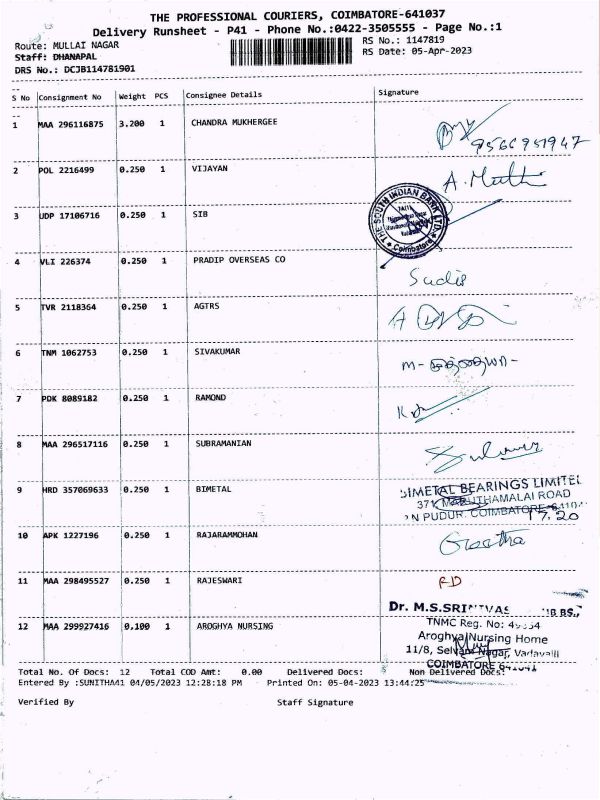 THE PROFESSIONAL COURIERS, COIMBATORE-641037
Delivery Runsheet - P41 - Phone No.:0422-3505555 - Page No.:1
Route: MULLAI NAGAR
RS No.: 1147819
Staff: DHANAPAL
RS Date: 05-Apr-2023
DRS No.: DCJB114781901
S No Consignment No Weight PCS Consignee Details Signature
1 MAA 296116875 3.200 1 CHANDRA MUKHERGEE
9566951947
2 POL 2216499 0.250 1 VIJAYAN A. Muthu
THE SOUTH INDIAN BANK LTD.
Coimbatore
3 UDP 17106716 0.250 1 SIB
4 VLI 226374 0.250 1 PRADIP OVERSEAS CO
5 TVR 2118364 0.250 1 AGTRS
6 TNM 1062753 0.250 1 SIVAKUMAR
7 PDK 8089182 0.250 1 RAMOND
8 MAA 296517116 0.250 1 SUBRAMANIAN
9 HRD 357069633 0.250 1 BIMETAL
BIMETAL BEARINGS LIMITED
371, MARUTHAMALAI ROAD
N PUDUR. COIMBATORE-64104
17.20
10 APK 1227196 0.250 1 RAJARAMMOHAN Geetha
11 MAA 298495527 0.250 1 RAJESWARI RD
12 MAA 299927416 0.100 1 AROGHYA NURSING
Dr. M.S.SRINIVAS
TNMC Reg. No:
Aroghya Nursing Home
11/8, Selvam Nagar, Vadavalli
COIMBATORE 641041
Total No. Of Docs: 12 Total COD Amt: 0.00 Delivered Docs: Non Delivered Docs:
Entered By :SUNITHA41 04/05/2023 12:28:18 PM Printed On: 05-04-2023 13:44:25
Verified By Staff Signature